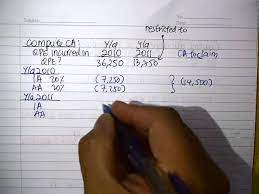 restricted to
Compute CA: Y/a Y/a
QPE incurred in 2010 2011 CA to claim
QPE? 36,250 13,750
Y/a 2010
IA 20% (7,250)
AA 20% (7,250) (14,500)
Y/a 2011
IA
AA